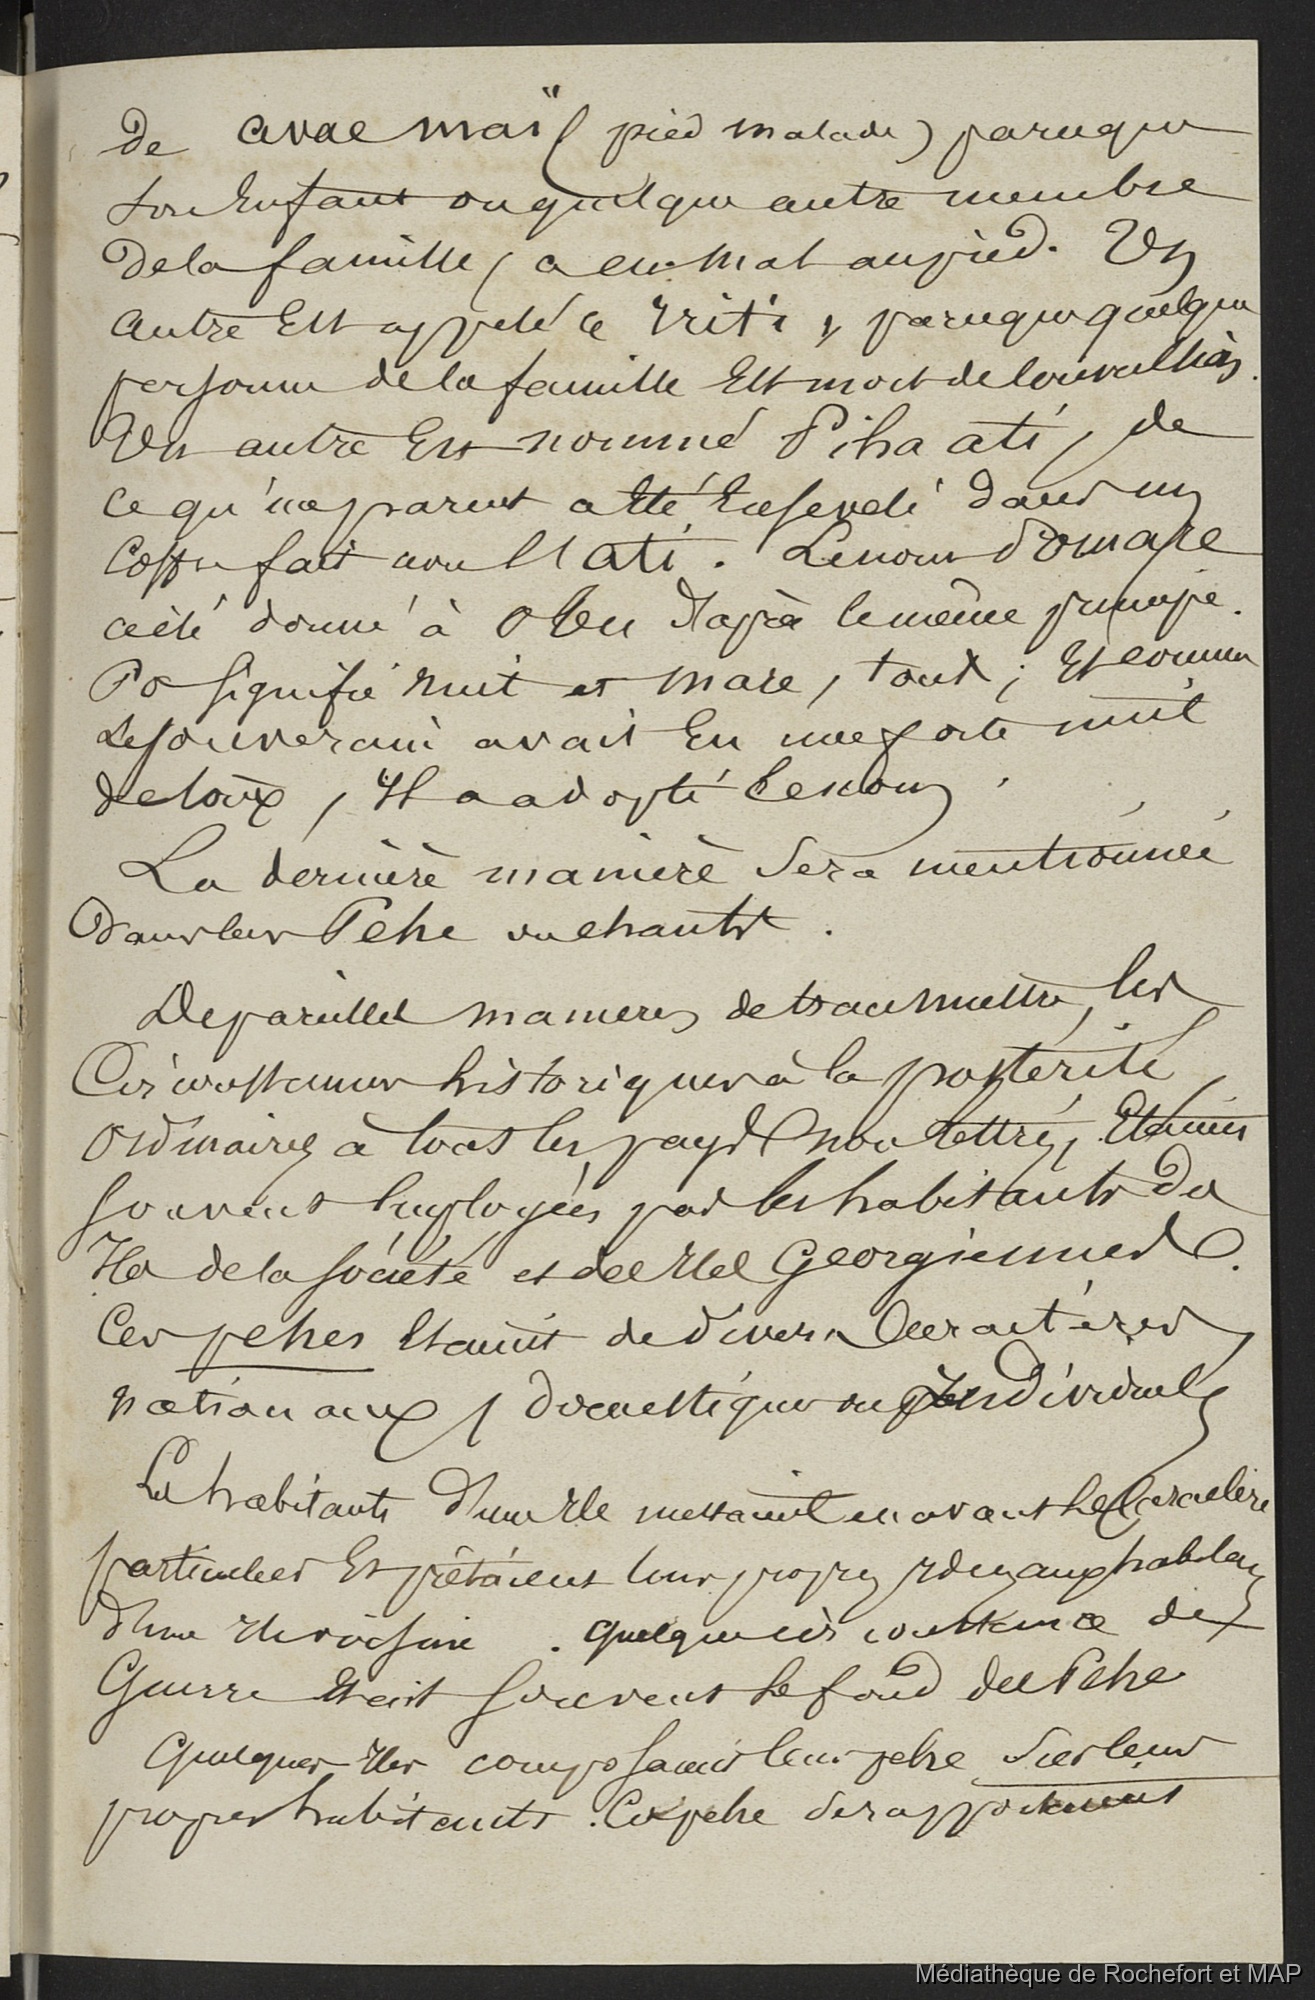 de avae mai" (pied malade) parceque
son Enfant ou quelque autre membre
de la famille, a eu mal au pied. Un
autre Est appelé e Iriti, parceque quelque
personne de la famille Est mort de convulsions.
Un autre Est nommé Piha ati, de
ce qu'un parent a été Enseveli dans un
Coffre fait avec l'ati. Le nom Pomare
a été donné à Otou d'après le même principe.
Po signifie nuit et mare, toux; Et comme
le souverain avait Eu une forte nuit
de toux, Il a adopté ce nom.
La dernière manière sera mentionnée
Dans leur Pehe ou chants.
De pareilles manieres de transmettre, les
Circonstances historiques à la postérité,
ordinaires à tous les pays non lettrés, Etaient
souvent Employées par les habitants des
Iles de la société et des Iles Georgiennes.
Ces pehes Etaient de divers Caractères
nationaux, domestiques ou individuels
Les habitants d'une Ile mettaient en avant le Caractère
particulier Et prêtaient leurs propres idées aux habitans
d'une Ile voisine. quelque circonstance de
Guerre Etait souvent le fond des Pehe
Quelques Iles composaient leur pehe sur leurs
propres habitants. Ces pehe se rapportaient
Médiathèque de Rochefort et MAP